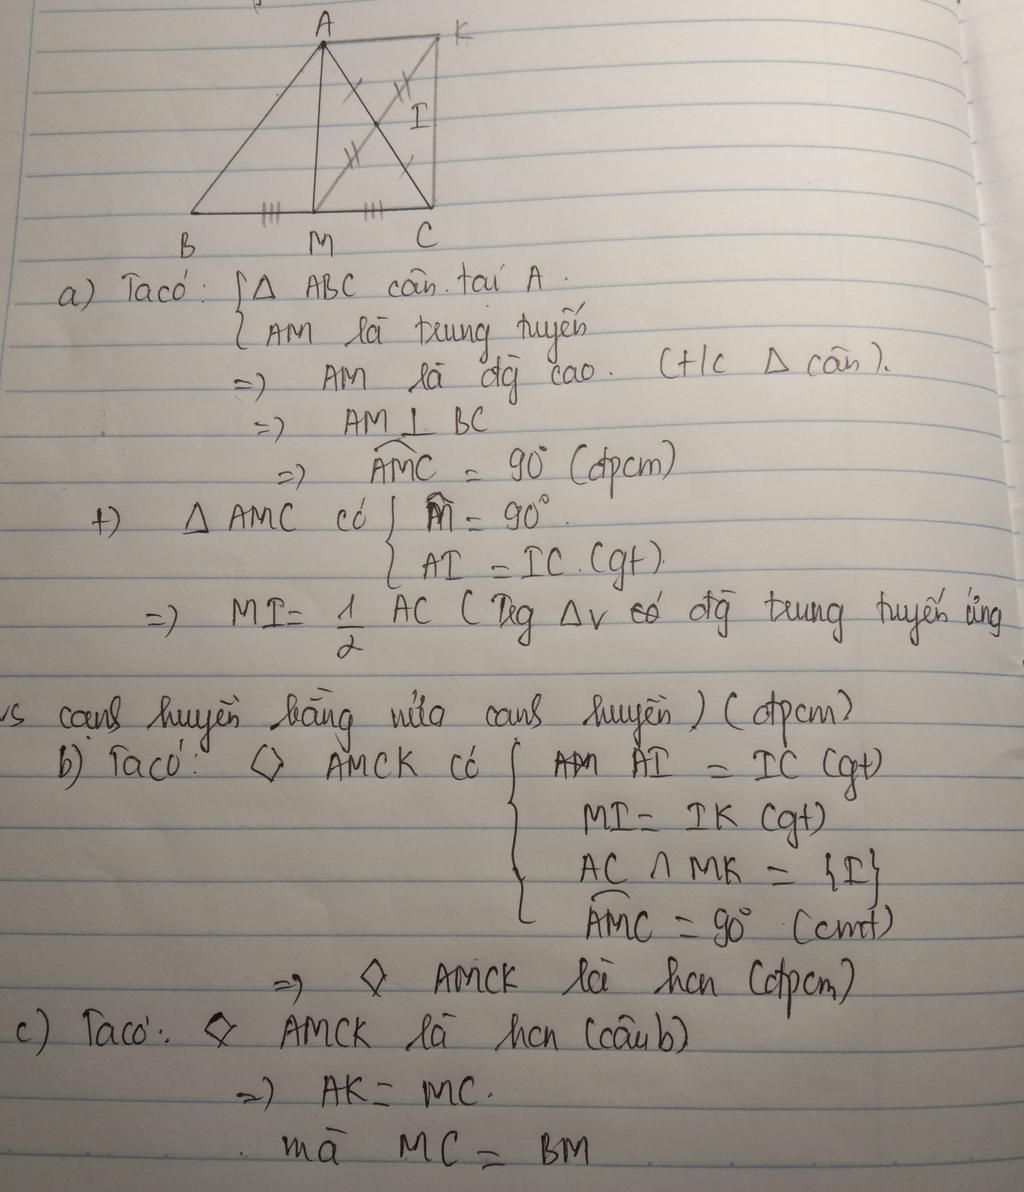 A
K
I
B
M
C
a) Ta có: { Δ ABC cân tại A.
AM là trung tuyến
=> AM là đg cao. (t/c Δ cân).
=> AM ⊥ BC
=> AMC = 90° (đpcm)
+) Δ AMC có { M̂ = 90°.
AI = IC (gt).
=> MI = 1/2 AC (Trg Δv có đg trung tuyến ứng
vs cạnh huyền bằng nửa cạnh huyền) (đpcm)
b) Ta có: ◇ AMCK có { AI = IC (gt)
MI = IK (gt)
AC ∩ MK = {I}
AMC = 90° (cmt)
=> ◇ AMCK là hcn (đpcm)
c) Ta có: ◇ AMCK là hcn (câu b)
=> AK = MC.
mà MC = BM